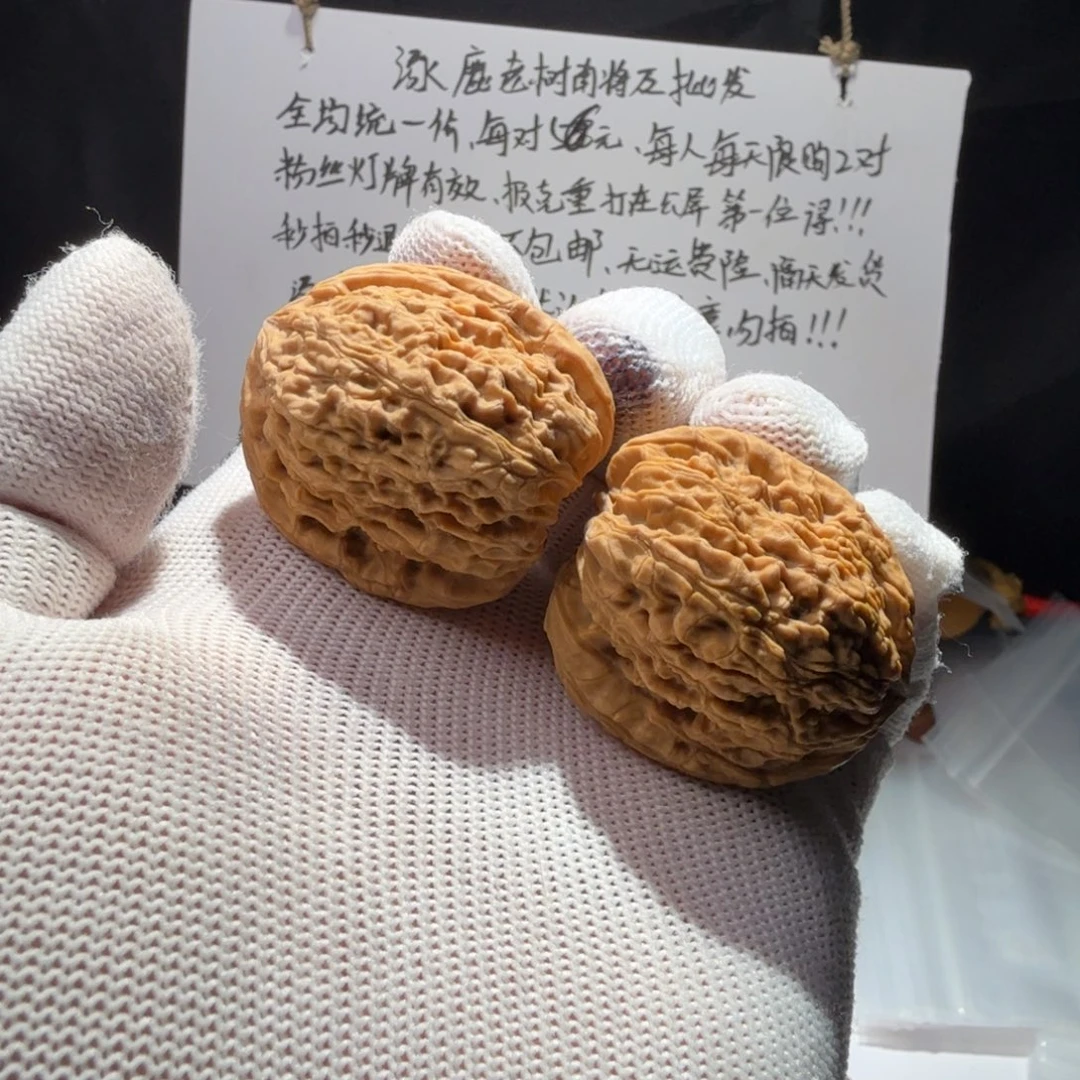 涿鹿老树南将石批发
全均统一价,每对元、每人每天限购2对
粉丝灯牌有效、报克重打在公屏第一位得!!!
秒拍秒退包邮、无运费险、隔天发货
勿拍!!!